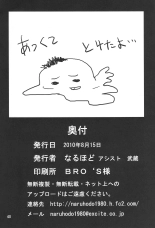 あつくて
とけたよ…
奥付
発行日 2010年8月15日
発行者 なるほど アシスト 武蔵
印刷所 BRO'S様
無断複製・無断転載・ネット上への
アップロードはご遠慮ください。
連絡先 http://naruhodo1980.h.fc2.com/
メール naruhodo1980@excite.co.jp